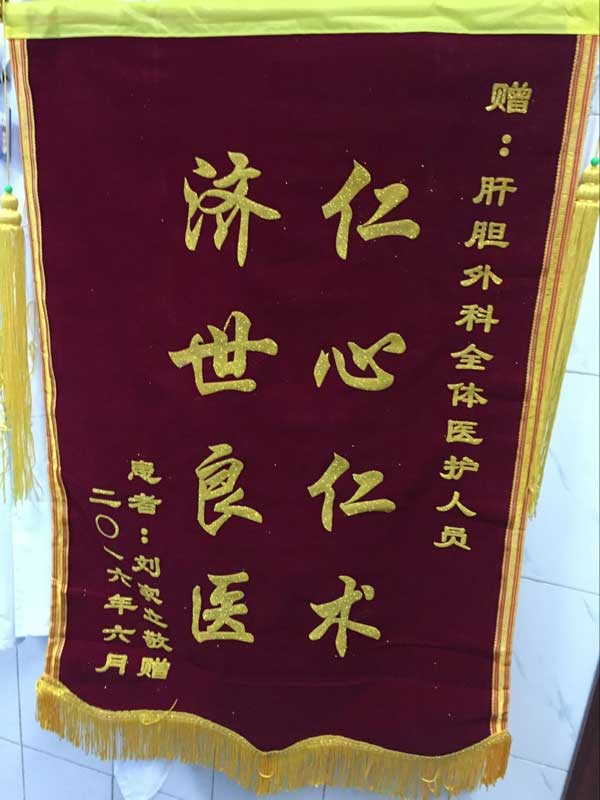 赠：肝胆外科全体医护人员
仁心仁术
济世良医
患者：刘立敬赠
二〇一六年六月